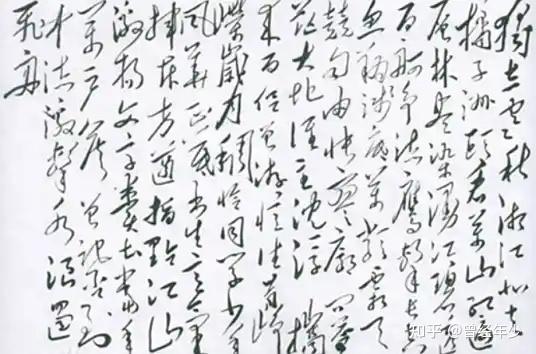 独立寒秋湘江北去
橘子洲头看万山红遍
层林尽染漫江碧透
百舸争流鹰击长空
鱼翔浅底万类霜天
竞自由怅寥廓问苍
茫大地谁主沉浮携
来百侣曾游忆往昔峥
嵘岁月稠恰同学少年
风华正茂书生意气
挥斥方遒指点江山
激扬文字粪土当年
万户侯曾记否到
中流击水浪遏
飞舟
知乎 @曾经年少